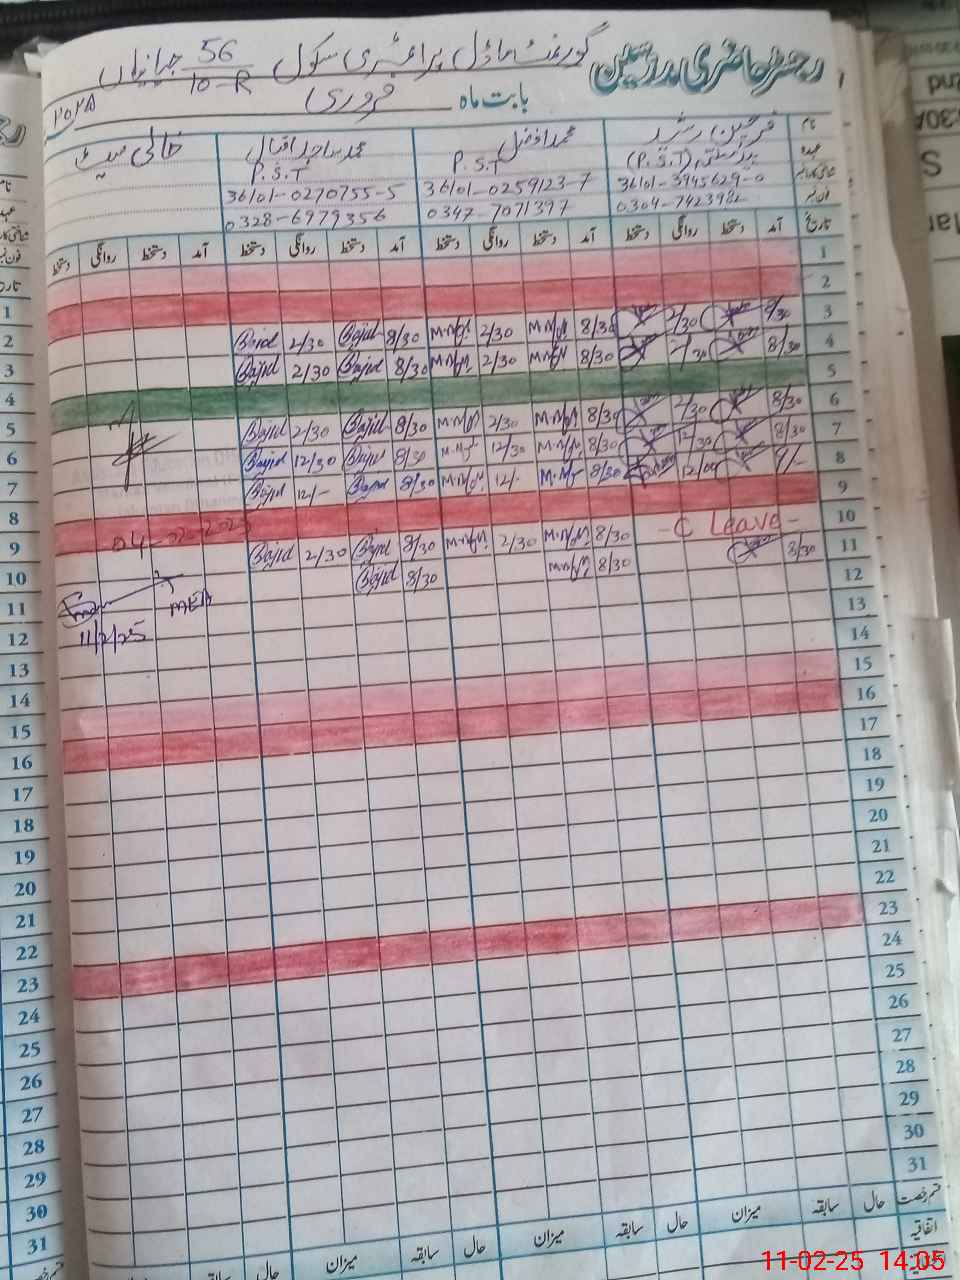 رجسٹر حاضری مدرسین گورنمنٹ ماڈل پرائمری سکول 56/10-R جہانیاں
بابت ماہ فروری ۲۰۲۵
نام فرحین رشید محمد افضل محمد ساجد اقبال خالی سیٹ
عہدہ (P.S.T) P.S.T P.S.T
شناختی کارڈ نمبر 36101-3945629-0 36101-0259123-7 36101-0270755-5
فون نمبر 0304-7423982 0347-7071397 0328-6979356
تاریخ آمد دستخط روانگی دستخط آمد دستخط روانگی دستخط آمد دستخط روانگی دستخط آمد دستخط روانگی دستخط
1
2
3 8/30 2/30 8/30 M.M 2/30 M.M 8/30 Sajid 2/30 Sajid
4 8/30 2/30 8/30 2/30 8/30 Sajid 2/30 Sajid
5
6 8/30 2/30 8/30 2/30 8/30 Sajid 2/30 Sajid
7 8/30 12/30 8/30 12/30 8/30 Sajid 12/30 Sajid
8 9/- 12/00 8/30 12/- 8/30 Sajid 12/- Sajid
9
10 - C Leave - 8/30 2/30 8/30 Sajid 2/30 Sajid
11 8/30 8/30 8/30 Sajid
12
13
14
15
16
17
18
19
20
21
22
23
24
25
26
27
28
29
30
31
04-02-2025
MEA
11/2/25
قسم رخصت حال سابقہ میزان حال سابقہ میزان حال سابقہ میزان
اتفاقیہ
1
2
3
4
5
6
7
8
9
10
11
12
13
14
15
16
17
18
19
20
21
22
23
24
25
26
27
28
29
30
31
11-02-25 14:05